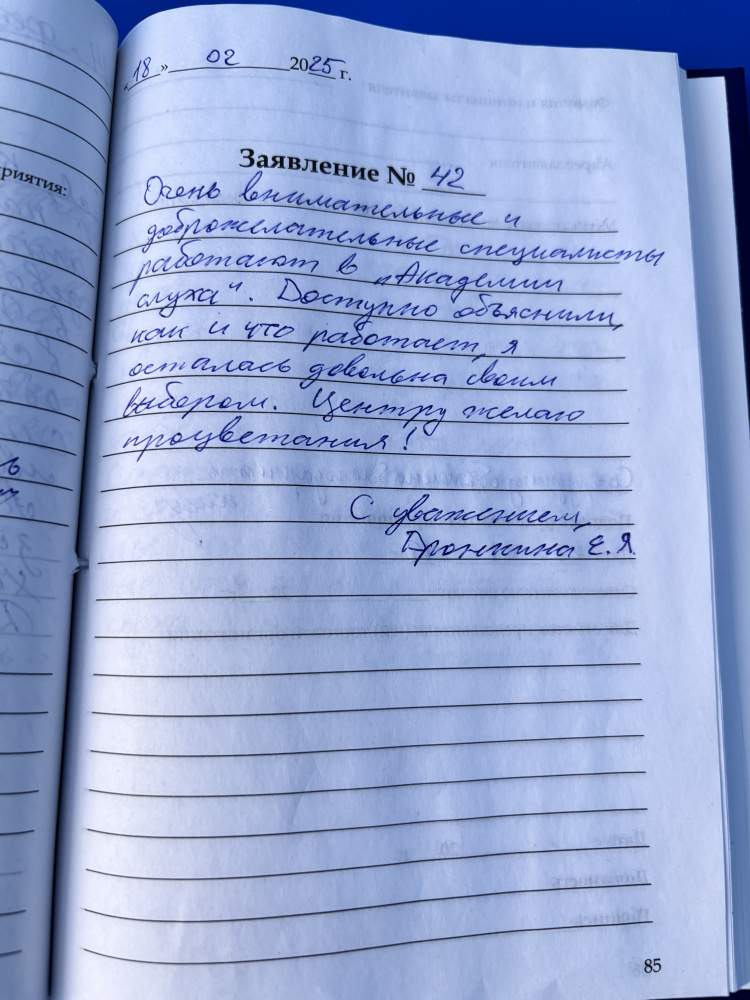 «18» 02 2025 г.
приятия:
Заявление № 42
Очень внимательные и
доброжелательные специалисты
работают в „Академии
слуха“. Доступно объяснили,
как и что работает, я
осталась довольна своим
выбором. Центру желаю
процветания!
С уважением,
Дронкина Е.Я.
85